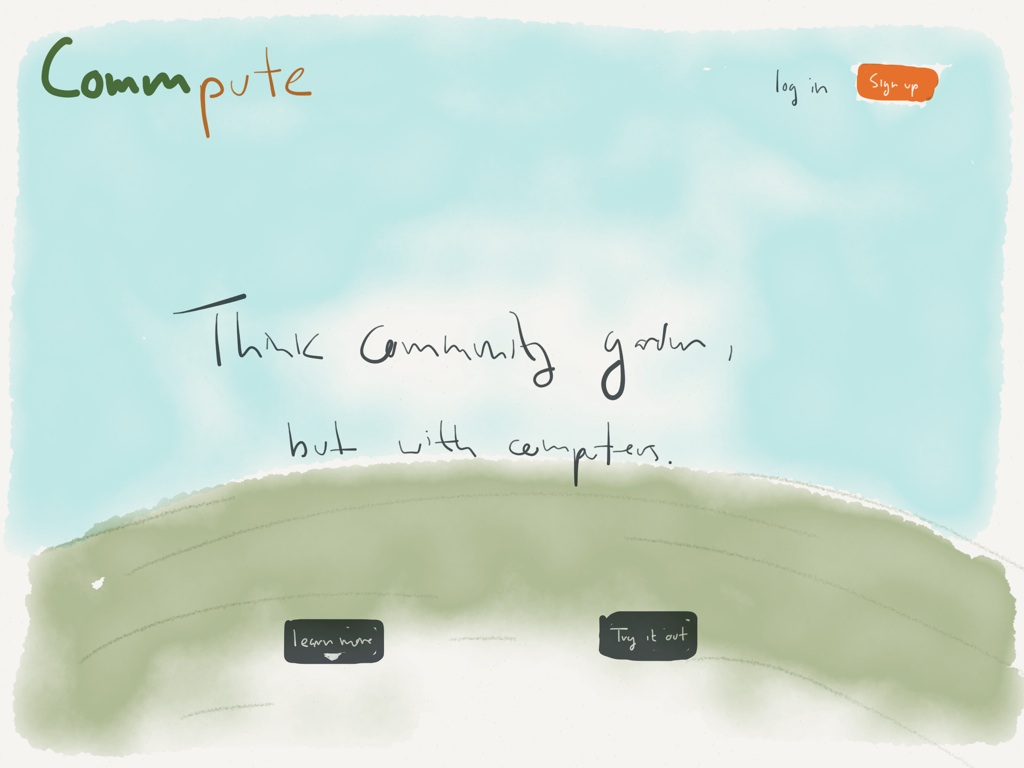 Commpute
log in
Sign up
Think community garden,
but with computers.
learn more
Try it out